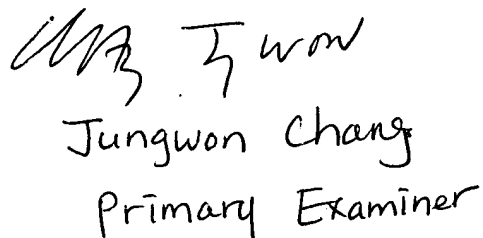 Jungwon Chang
Primary Examiner